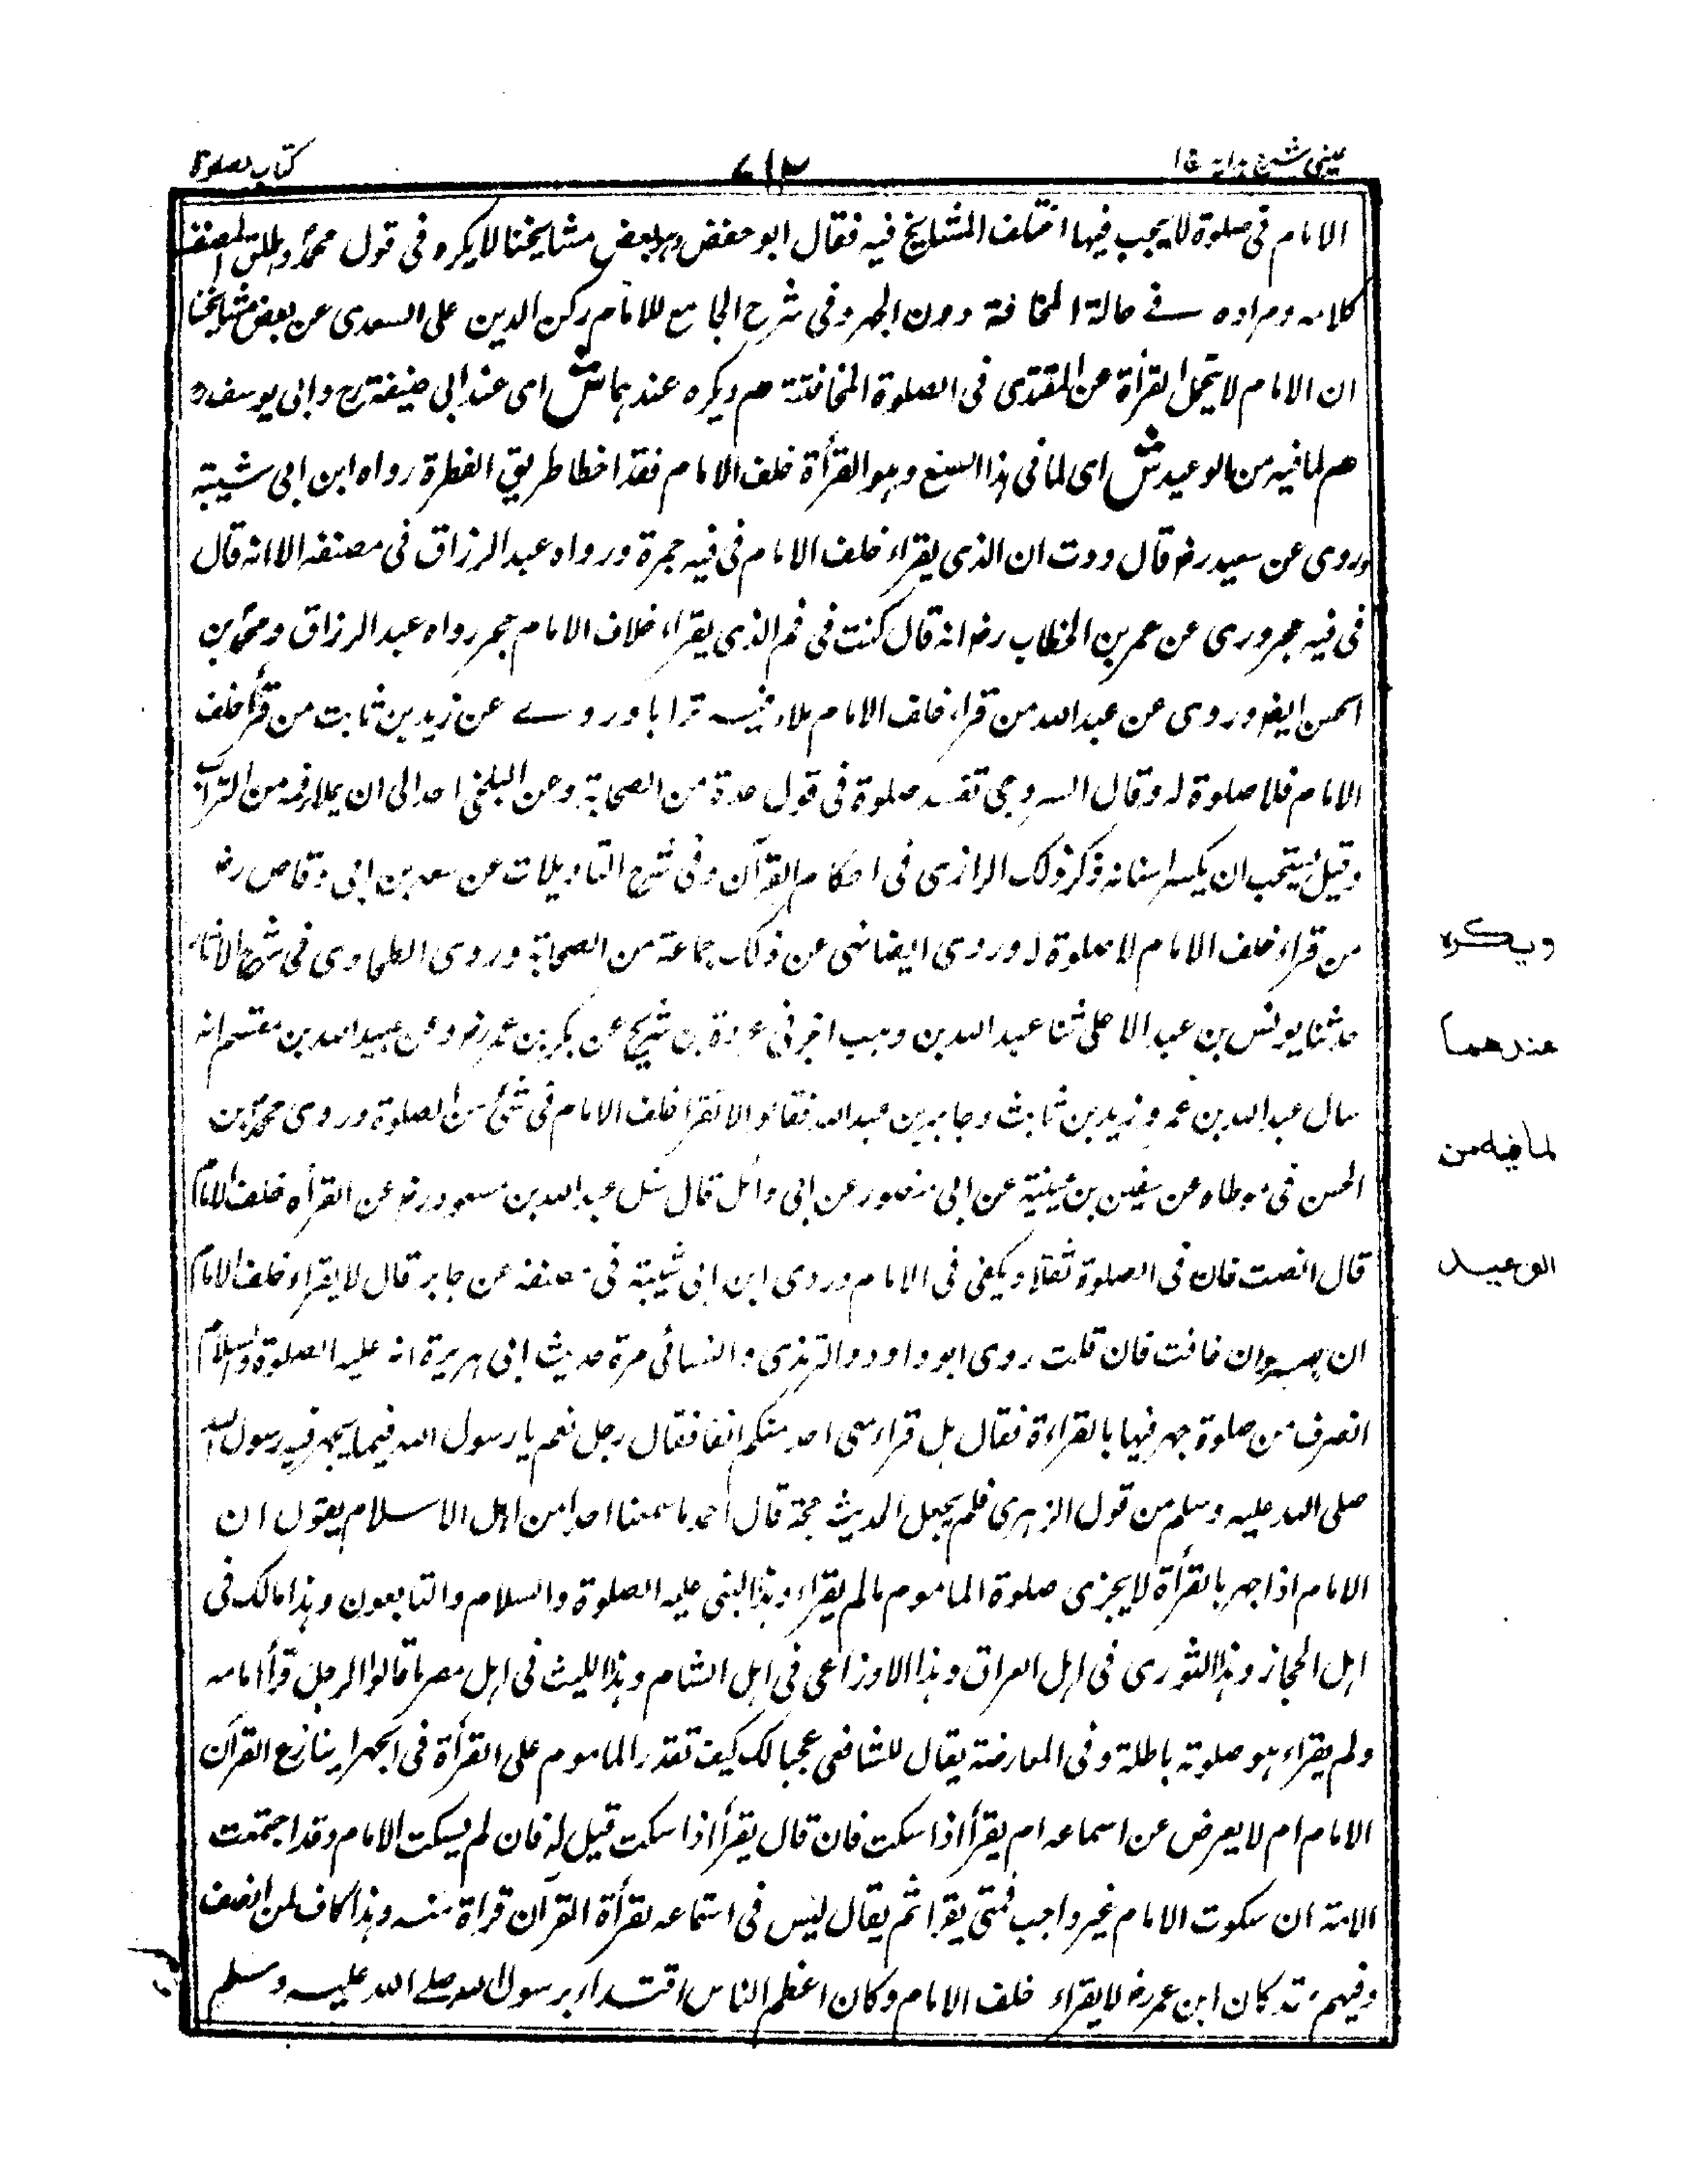 عینی شرح هدایه ج ا
٧١٣
کتاب الصلوة
الامام فی صلوة لا یجب فیها اختلف المشایخ فیه فقال ابو حفص وبعض مشایخنا لا یکره فی قول محمد واطلق المصنف
کلامه ومراده فے حالة المخافتة دون الجهر وفی شرح الجامع للامام رکن الدین علی السعدی عن بعض مشایخنا
ان الامام لا یتحمل القرأة عن المقتدی فی الصلوة المخافتة هم ویکره عندهما ش ای عند ابی حنیفة رح وابی یوسف رح
هم لما فیه من الوعید ش ای لما فی هذا الصنیع وهو القرأة خلف الامام فقد اخطا طریق الفطرة رواه ابن ابی شیبة
وروی عن سعید رض قال وددت ان الذی یقراء خلف الامام فی فیه جمرة ورواه عبد الرزاق فی مصنفه الا انه قال
فی فیه حجر وروی عن عمر بن الخطاب رض انه قال کنت فی فم الذی یقراء خلاف الامام حجر رواه عبد الرزاق ومحمد بن
الحسن ایضا وروی عن عبد الله من قراء خلف الامام ملاء فیه ترابا وروے عن زید بن ثابت من قرأ خلف
الامام فلا صلوة له وقال السروجی تفسد صلوة فی قول عدة من الصحابة وعن البلخی احد الی ان یملا فمه من التراب
وقیل یستحب ان یکسر اسنانه ذکر ذلک الرازی فی احکام القرآن وفی شرح التاویلات عن سعد بن ابی وقاص رض
من قراء خلف الامام لا صلوة له وروی ایضا نهی عن ذلک جماعة من الصحابة وروی الطحاوی فی شرح الاثار
حدثنا یونس بن عبد الاعلی ثنا عبد الله بن وهب اخبرنی حیوة بن شریح عن بکر بن عمر رض وعن عبید الله بن مقسم انه
سال عبد الله بن عمر و زید بن ثابت وجابر بن عبد الله فقالوا لا تقرا خلف الامام فی شئ من الصلوة وروی محمد بن
الحسن فی موطاه عن سفین بن عیینة عن ابی منصور عن ابی وائل قال سئل عبد الله بن مسعود رض عن القرأه خلف الامام
قال انصت فان فی الصلوة شغلا ویکفی فی الامام وروی ابن ابی شیبة فی مصنفه عن جابر قال لا یقراء خلف الامام
ان جهر وان خافت فان قلت روی ابو داود والترمذی والنسائی مرة حدیث ابی هریرة انه علیه الصلوة والسلام
انصرف من صلوة جهر فیها بالقراءة فقال هل قراء معی احد منکم انفا فقال رجل نعم یا رسول الله فیما یجهر فیه رسول الله
صلی الله علیه وسلم من قول الزهری فلم یجعل الحدیث حجة قال احمد ما سمعنا احدا من اهل الاسلام یقول ان
الامام اذا جهر بالقرأة لا یجزی صلوة الماموم ما لم یقراء وهذا النبی علیه الصلوة والسلام والتابعون وهذا مالک فی
اهل الحجاز وهذا الثوری فی اهل العراق وهذا الاوزاعی فی اهل الشام وهذا اللیث فی اهل مصر ما قالوا الرجل قرأ امامه
ولم یقراء هو صلوته باطلة وفی المعارضة یقال للشافعی عجبا لک کیف تقدر الماموم علی القرأة فی الجهر اینازع القرآن
الامام ام لا یعرض عن اسماعه ام یقرأ اذا سکت فان قال یقرأ اذا سکت قیل له فان لم یسکت الامام وقد اجتمعت
الامة ان سکوت الامام غیر واجب فمتی یقرا ثم یقال لیس فی استماعه بقرأة القرآن قراة منه وهذا کاف لمن انصف
وفهم وقد کان ابن عمر رض لا یقراء خلف الامام وکان اعظم الناس اقتداء برسول الله صلے الله علیه وسلم
ویکره
عندهما
لما فیه من
الوعید